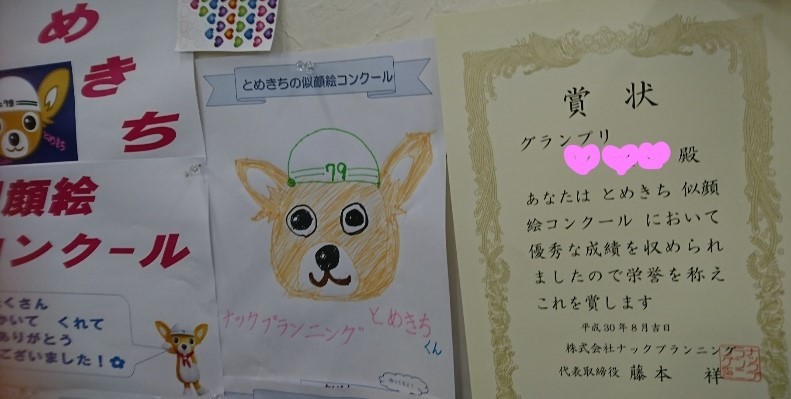 めきち
79
とめきち
似顔絵
コンクール
たくさん
かいて くれて
ありがとう
ございました!
とめきちの似顔絵コンクール
79
ナックプランニング とめきち
くん
賞 状
グランプリ
殿
あなたは とめきち 似顔
絵コンクール において
優秀な成績を収められ
ましたので栄誉を称え
これを賞します
平成30年8月吉日
株式会社ナックプランニング
代表取締役 藤本 祥